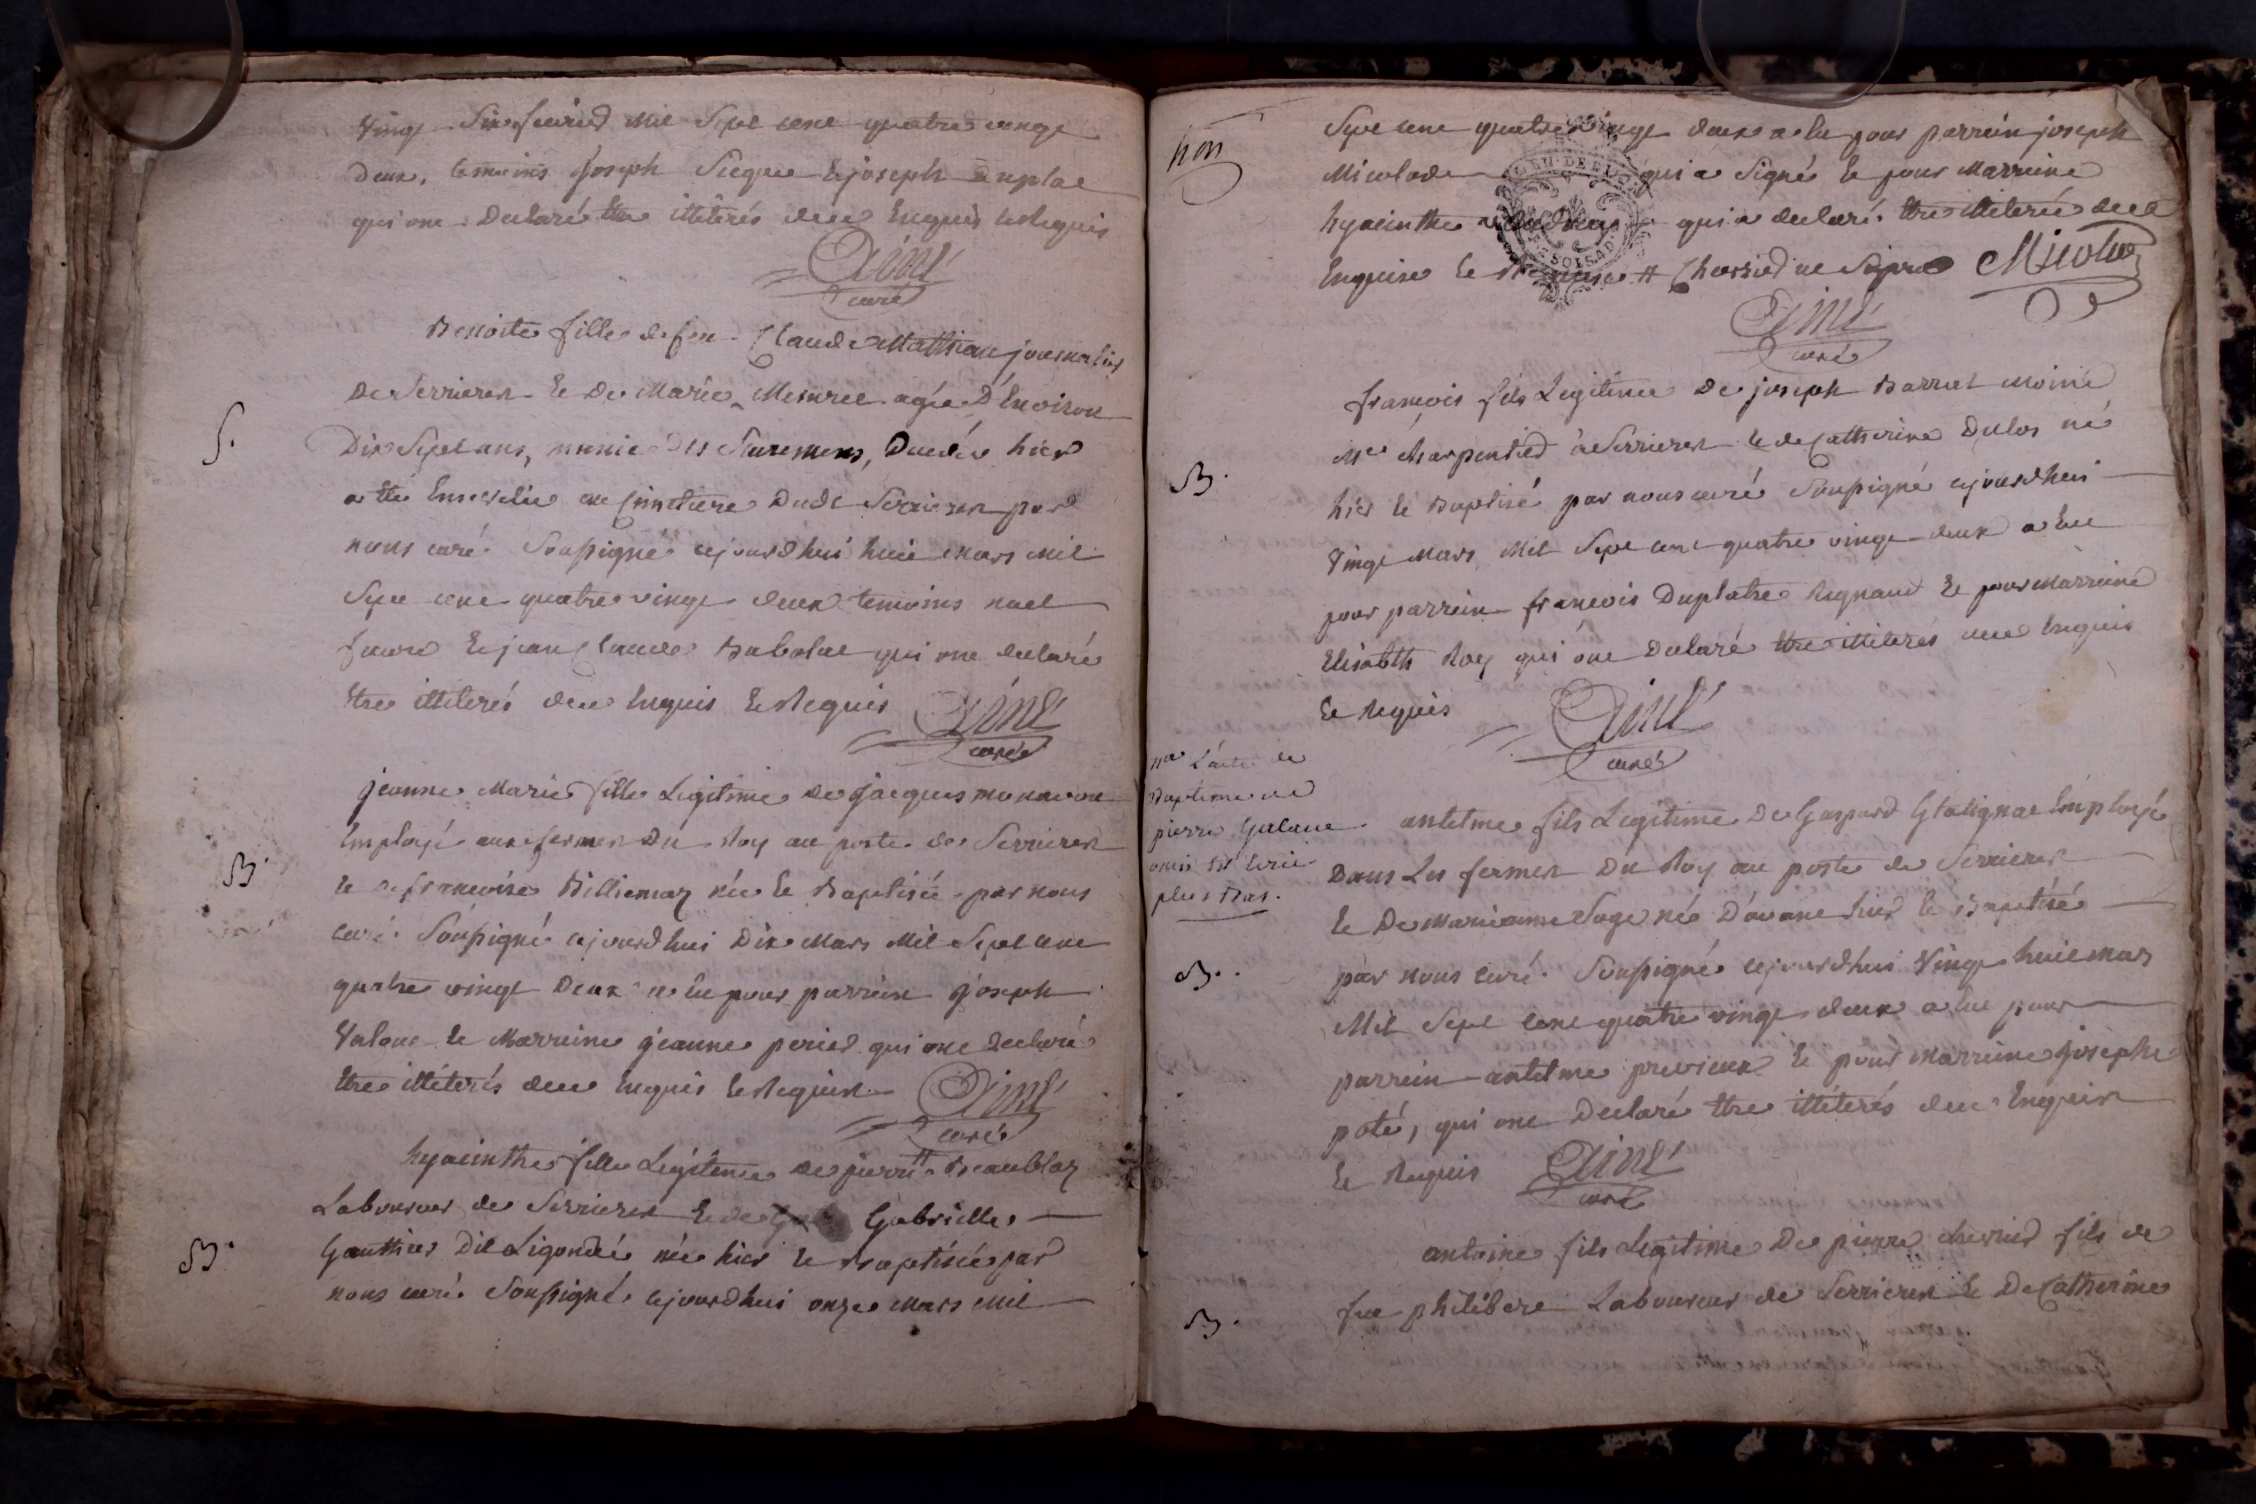 Vingt Six fevrier mil Sept cent quatre vingt
deux, temoins joseph Siegue et joseph
qui ont declaré etre illiterés de ce Enquis et Requis
Aimé
curé
Benoite fille de feu Claude Mathieu journalier
De Serrieres et De Marie Mesnree agée D'Environ
S.
Dix Sept ans, munie Des Sacremens, Decedée hier
a eté Ensevelie au Cimetiere Dudt Serrieres par
nous curé Soussigné ajourdhui huit mars mil
Sept cent quatre vingt deux temoins noel
favre et jean Claude Babolat qui ont declaré
etre illiterés de ce Enquis et Requis
Aimé
curé
jeanne Marie fille Legitime de jacques
Employé aux fermes Du Roy au poste de Serrieres
B.
et de francoise Billiemaz née et Baptisée par nous
curé Soussigné ajourdhui Dix Mars Mil Sept cent
quatre vingt Deux a eu pour parrein joseph
et Marreine jeanne perier qui ont declaré
etre illiterés de ce Enquis et Requis
Aimé
curé
hyacinthe fille Legitime de pierre # Beaublez
Laboureur de Serrieres et de Gabrielle
B.
Gauthier Dit Ligondé née hier et Baptisée par
nous curé Soussigné ajourdhui onze Mars Mil
non
Sept cent quatre vingt deux a eu pour parrein joseph
Micolod qui a Signé et pour Marreine
hyacinthe qui a declaré etre illiterée de ce
Enquise et Requise # Charrier ne Micolod
Aimé
curé
françois fils Legitime De joseph Barret Moine
Me Charpentier à Serrieres et de Catherine Dulos né
B.
hier et Baptisé par nous curé Soussigné ajourdhui
Vingt Mars Mil Sept cent quatre vingt deux a eu
pour parrein francois Duplatre Regnaud et pour Marreine
Elisabeth Roy qui ont Declaré etre illiterés de ce Enquis
et Requis
Aimé
curé
nta L'acte de
Baptême de
pierre Galane
omis est Ecrit
plus Bas.
antelme fils Legitime De Gaspard Glatignat Employé
Dans Les fermes Du Roy au poste de Serrieres
et De Marieanne Sage né D'avant hier et Baptisé
B.
par nous curé Soussigné ajourdhui Vingt huit Mars
Mil Sept cent quatre vingt deux a eu pour
parrein antelme previeux et pour Marreine josephe
poté, qui ont Declaré etre illiterés de ce Enquis
et Requis
Aimé
curé
antoine fils Legitime De pierre cherrier fils de
B.
feu philibert Laboureur de Serrieres et De Catherine